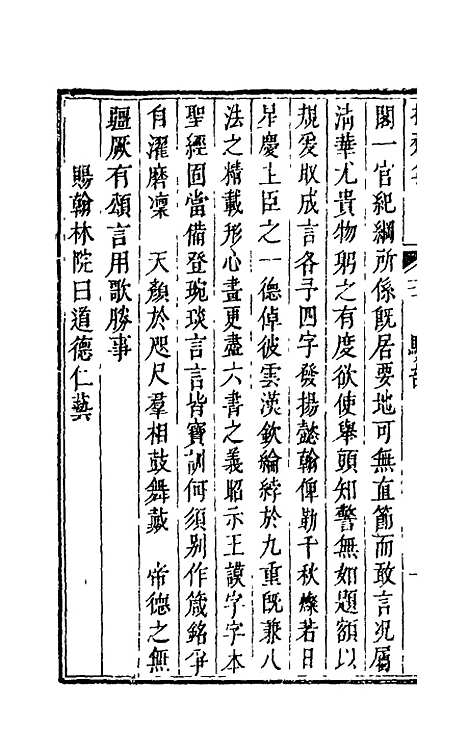 閣一官紀綱所係既居要地可無直節而敢言况屬
淸華尤貴物躬之有度欲使舉頭知警無如題額以
規爰取成言各予四字發揚懿翰俾勒千秋燦若日
星慶上臣之一德倬彼雲漢欽綸綍於九重既兼八
法之精載形心畫更盡六書之義昭示王謨字字本
聖經固當備登琬琰言言皆寶訓何須别作箴銘爭
自濯磨凜　天顏於咫尺羣相鼓舞戴　帝德之無
疆厥有頌言用歌勝事
賜翰林院曰道德仁藝